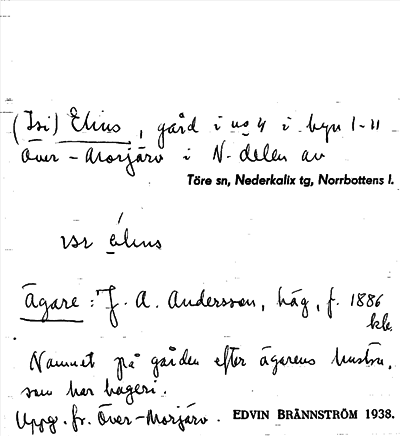 (Isi) Elins, gård i no 4 i byn 1-11
Över-Morjärv i N. delen av
Töre sn, Nederkalix tg, Norrbottens l.
elins
Ägare: J. A. Andersson, häg, f. 1886
Namnet på gården efter ägarens hustru,
som har bageri.
Uppg. fr. Över-Morjärv. EDVIN BRÄNNSTRÖM 1938.